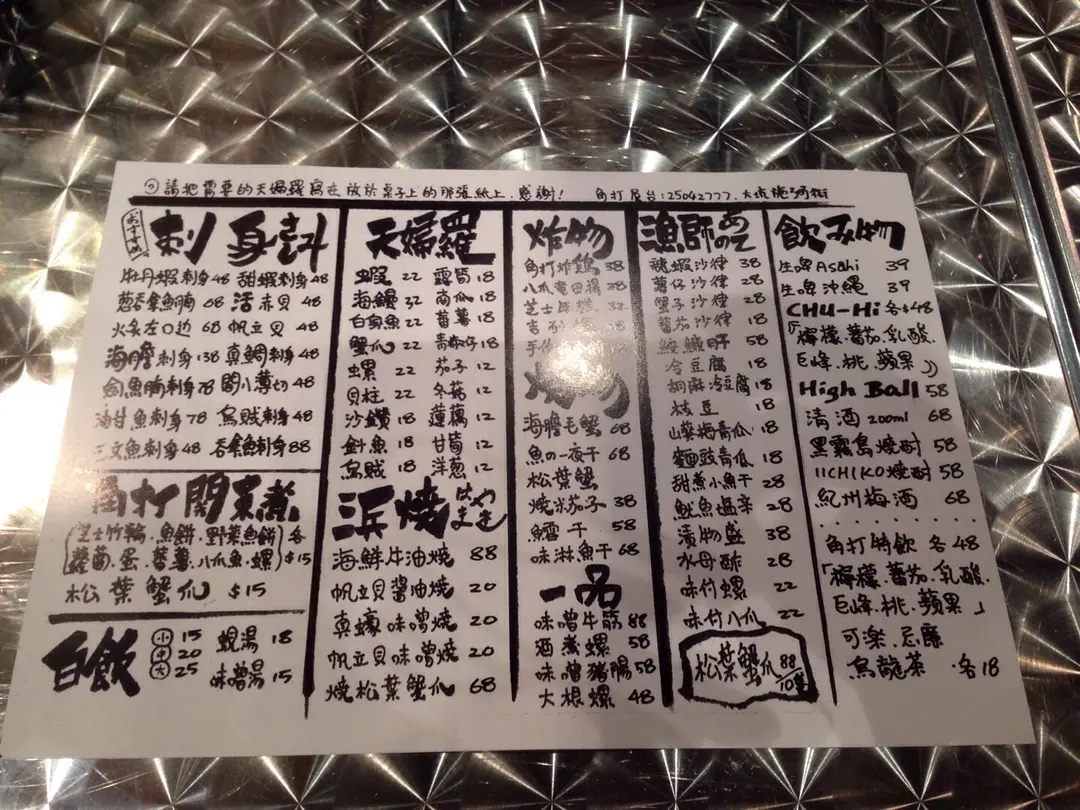 請把需要的天婦羅寫在放於桌子上的那張紙上.感謝! 角打屋台:25042777.大坑
刺身
牡丹蝦刺身48 甜蝦刺身48
吞拿魚腩68 活赤貝48
火炙左口边68 帆立貝48
海膽刺身138 真鯛刺身48
劍魚腩刺身78 薄切48
油甘魚刺身78 烏賊刺身48
三文魚刺身48 吞拿魚刺身88
角打関東煮
芝士竹輪.魚餅.野菜魚餅 各
蘿蔔.蛋.蕃薯.八爪魚.螺 $15
松葉蟹爪 $15
白飯
小 15
中 20
大 25
蜆湯 18
味噌湯 15
天婦羅
蝦 22 露筍 18
海鰻 32 南瓜 18
白身魚 22 蕃薯 18
蟹爪 22 青椒仔 18
螺 22 茄子 12
貝柱 22 冬菇 12
沙鑽 18 蓮藕 12
魚 18 甘筍 12
烏賊 18 洋蔥 12
浜焼 はまやき
海鮮牛油燒 88
帆立貝醬油燒 20
真蠔味噌燒 20
帆立貝味噌燒 20
燒松葉蟹爪 68
炸物
角打炸鶏 38
八爪竜田揚 28
芝士年糕 32
18
手
物
海膽毛蟹 68
魚の一夜干 68
松葉蟹
燒茄子 38
干 58
味淋魚干 68
一品
味噌牛筋 88
酒煮螺 58
味噌豬腸 58
大根螺 48
漁師あのて
龍蝦沙律 38
薯仔沙律 28
蟹子沙律 28
蕃茄沙律 28
鮟鱇肝 58
冷豆腐 18
胡麻冷豆腐 18
枝豆 18
山葵梅青瓜 18
麵豉青瓜 18
甜煮小魚干 28
魷魚塩辛 28
漬物盛 38
水母酢 28
味付螺 22
味付八爪 22
松葉蟹爪 88/10隻
飲み物
生啤 Asahi 39
生啤 沖縄 39
CHU-Hi 各$48
「檸檬.蕃茄.乳酸.
巨峰.桃.蘋果」
High Ball 58
清酒 200ml 68
黑霧島燒酎 58
IICHIKO燒酎 58
紀州梅酒 68
角打特飲 各48
「檸檬.蕃茄.乳酸.
巨峰.桃.蘋果」
可樂.忌廉
烏龍茶 各18